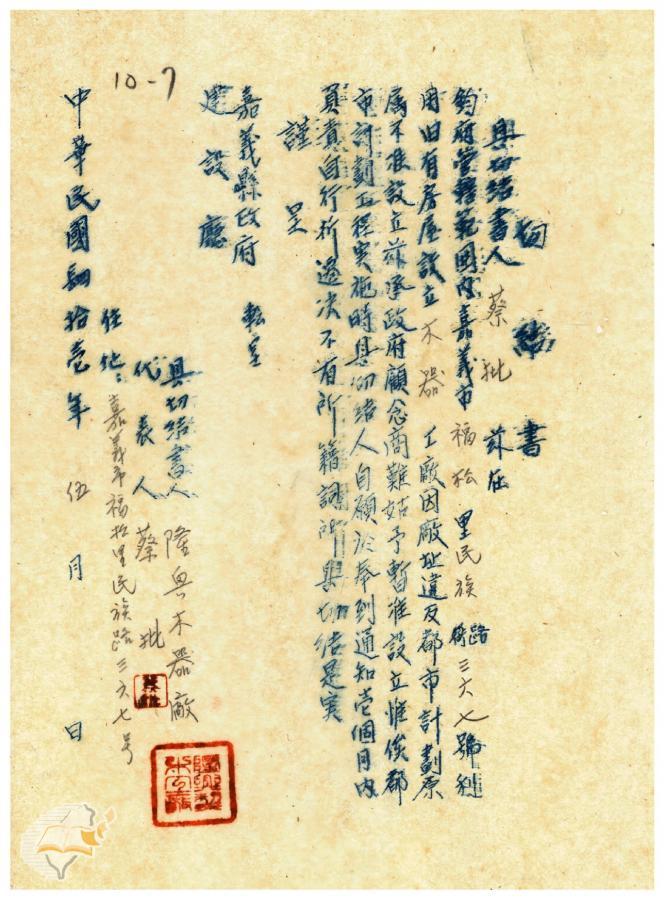 10-7
切結書
具切結書人 蔡 批 茲在
鈞府管轄範圍內嘉義市福松里民族路街三六七號利
用旧有房屋設立木器工廠因廠址違反都市計劃原
屬不准設立茲承政府顧念商難姑予暫准設立惟俟都
市計劃工程實施時具切結人自願於奉到通知壱個月內
負責自行拆遷決不有所藉詞所具切結是实
謹呈
嘉義縣政府 転呈
建設廳
具切結書人 隆興木器廠
代表人 蔡 批
住址：嘉義市福松里民族路三六七号
中華民國肆拾壱年 伍 月 日